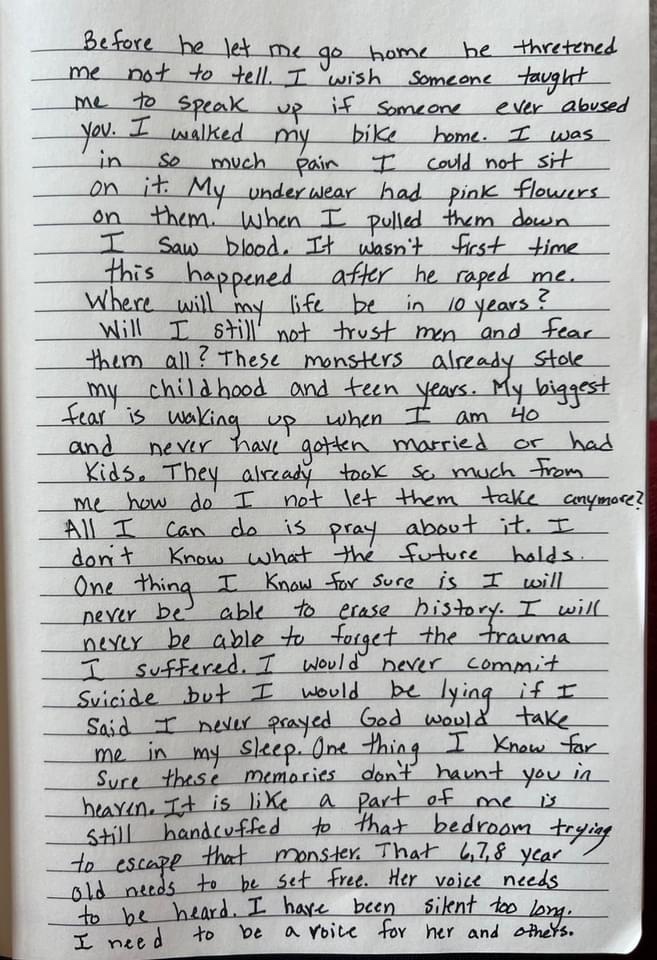 Before he let me go home he thretened
me not to tell. I wish someone taught
me to speak up if someone ever abused
you. I walked my bike home. I was
in so much pain I could not sit
on it. My underwear had pink flowers
on them. When I pulled them down
I saw blood. It wasn't first time
this happened after he raped me.
Where will my life be in 10 years?
Will I still not trust men and fear
them all? These monsters already stole
my childhood and teen years. My biggest
fear is waking up when I am 40
and never have gotten married or had
kids. They already took so much from
me how do I not let them take anymore?
All I can do is pray about it. I
don't know what the future holds.
One thing I know for sure is I will
never be able to erase history. I will
never be able to forget the trauma
I suffered. I would never commit
suicide but I would be lying if I
said I never prayed God would take
me in my sleep. One thing I know for
sure these memories don't haunt you in
heaven. It is like a part of me is
still handcuffed to that bedroom trying
to escape that monster. That 6,7,8 year
old needs to be set free. Her voice needs
to be heard. I have been silent too long.
I need to be a voice for her and others.